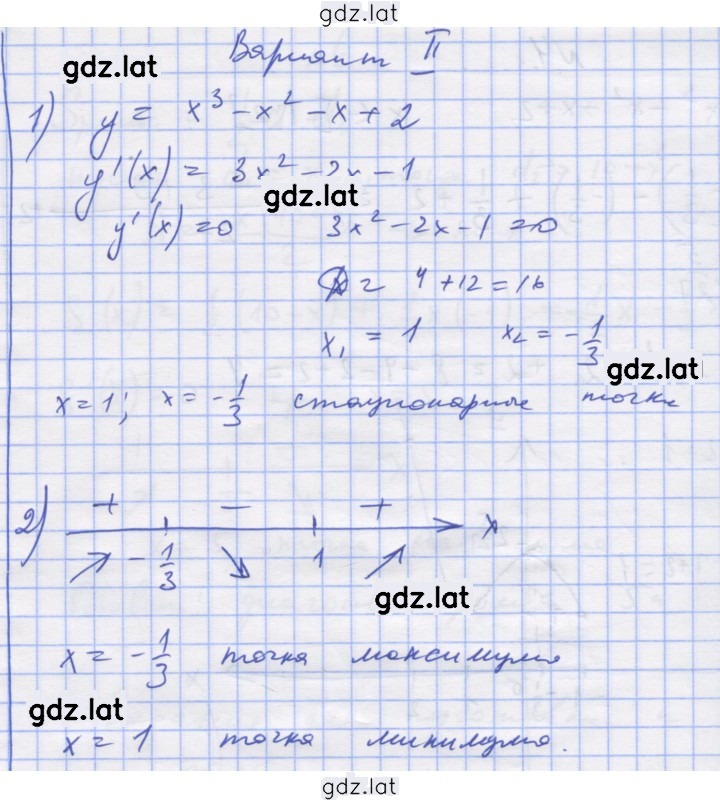 gdz.lat
Вариант II
gdz.lat
1) y = x³ - x² - x + 2
y'(x) = 3x² - 2x - 1
gdz.lat
y'(x) = 0 3x² - 2x - 1 = 0
D = 4 + 12 = 16
x₁ = 1 x₂ = -1/3
gdz.lat
x = 1; x = -1/3 стационарные точки
2) + - + x
-1/3 1
gdz.lat
x = -1/3 точка максимума
gdz.lat
x = 1 точка минимума.
gdz.lat